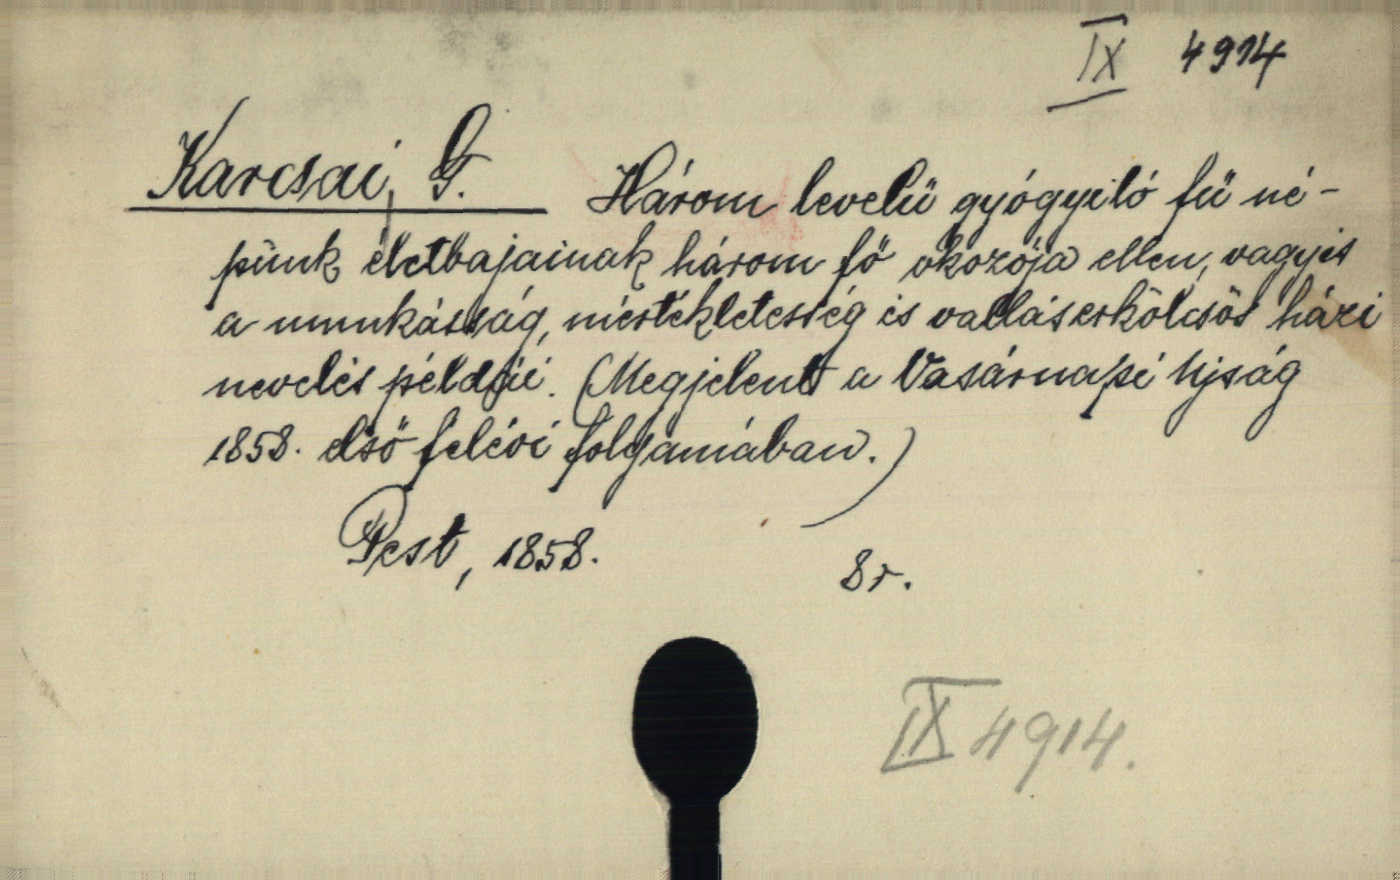 IX 4914
Karcsai, G. Három levelü gyógyitó fü né-
pünk életbajainak három fő okozója ellen, vagyis
a munkásság, mértékletesség és valláserkölcsös házi
nevelés példái. (Megjelent a Vasárnapi Ujság
1858. első felévi folyamában.)
Pest, 1858. 8r.
IX 4914.